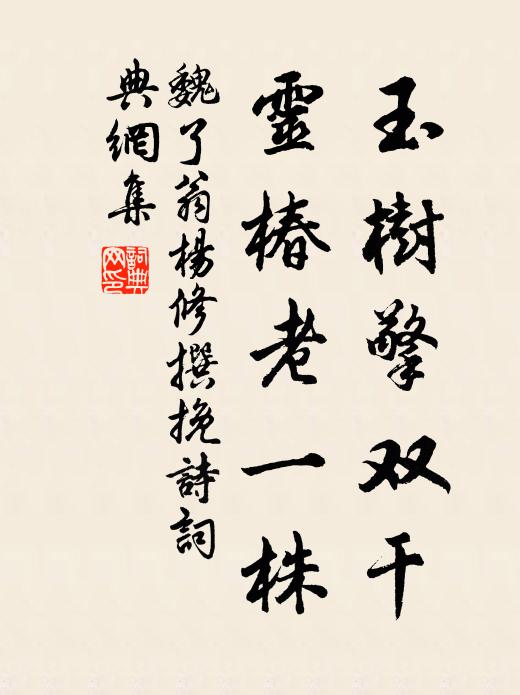 玉樹擎双干
靈椿老一株
魏了翁楊修撰挽詩詞
典網集
詞典網印